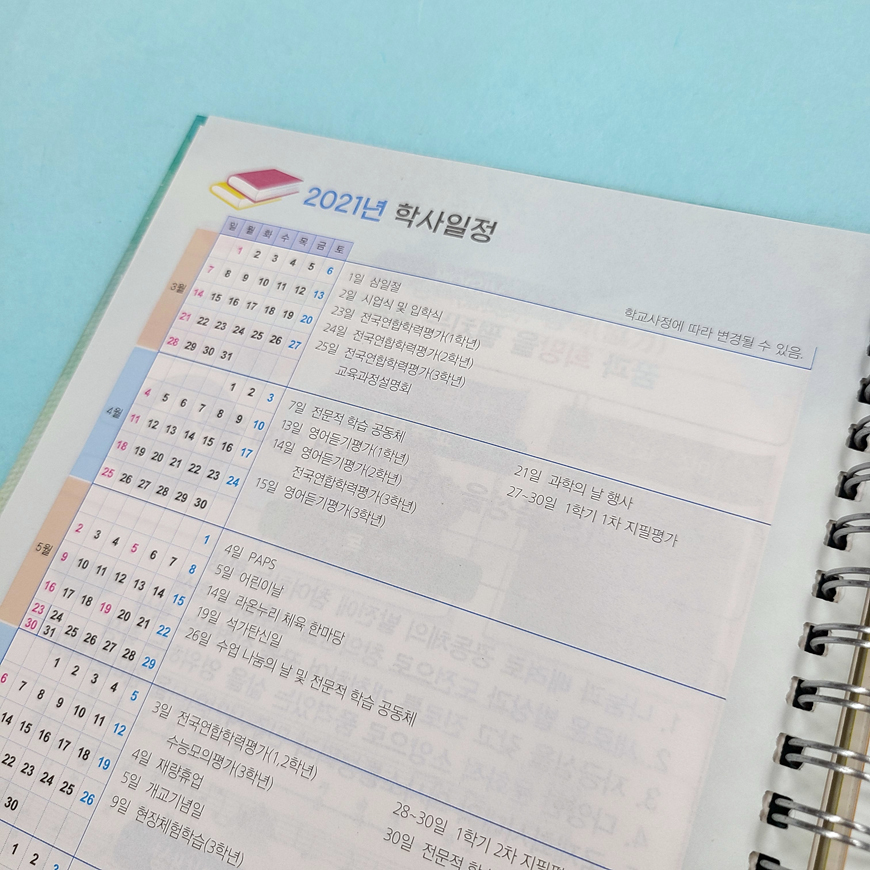 2021년 학사일정
학교사정에 따라 변경될 수 있음.
일 월 화 수 목 금 토
3월
1 2 3 4 5 6
7 8 9 10 11 12 13
14 15 16 17 18 19 20
21 22 23 24 25 26 27
28 29 30 31
1일 삼일절
2일 시업식 및 입학식
23일 전국연합학력평가(1학년)
24일 전국연합학력평가(2학년)
25일 전국연합학력평가(3학년)
교육과정설명회
4월
1 2 3
4 5 6 7 8 9 10
11 12 13 14 15 16 17
18 19 20 21 22 23 24
25 26 27 28 29 30
7일 전문적 학습 공동체
13일 영어듣기평가(1학년)
14일 영어듣기평가(2학년)
전국연합학력평가(3학년)
15일 영어듣기평가(3학년)
21일 과학의 날 행사
27~30일 1학기 1차 지필평가
5월
1
2 3 4 5 6 7 8
9 10 11 12 13 14 15
16 17 18 19 20 21 22
23 24 25 26 27 28 29
30 31
4일 PAPS
5일 어린이날
14일 라온누리 체육 한마당
19일 석가탄신일
26일 수업 나눔의 날 및 전문적 학습 공동체
1 2 3 4 5
6 7 8 9 10 11 12
14 15 16 17 18 19
22 23 24 25 26
30
3일 전국연합학력평가(1,2학년)
수능모의평가(3학년)
4일 재량휴업
5일 개교기념일
9일 현장체험학습(3학년)
28~30일 1학기 2차 지필평
30일 전문적
1 2